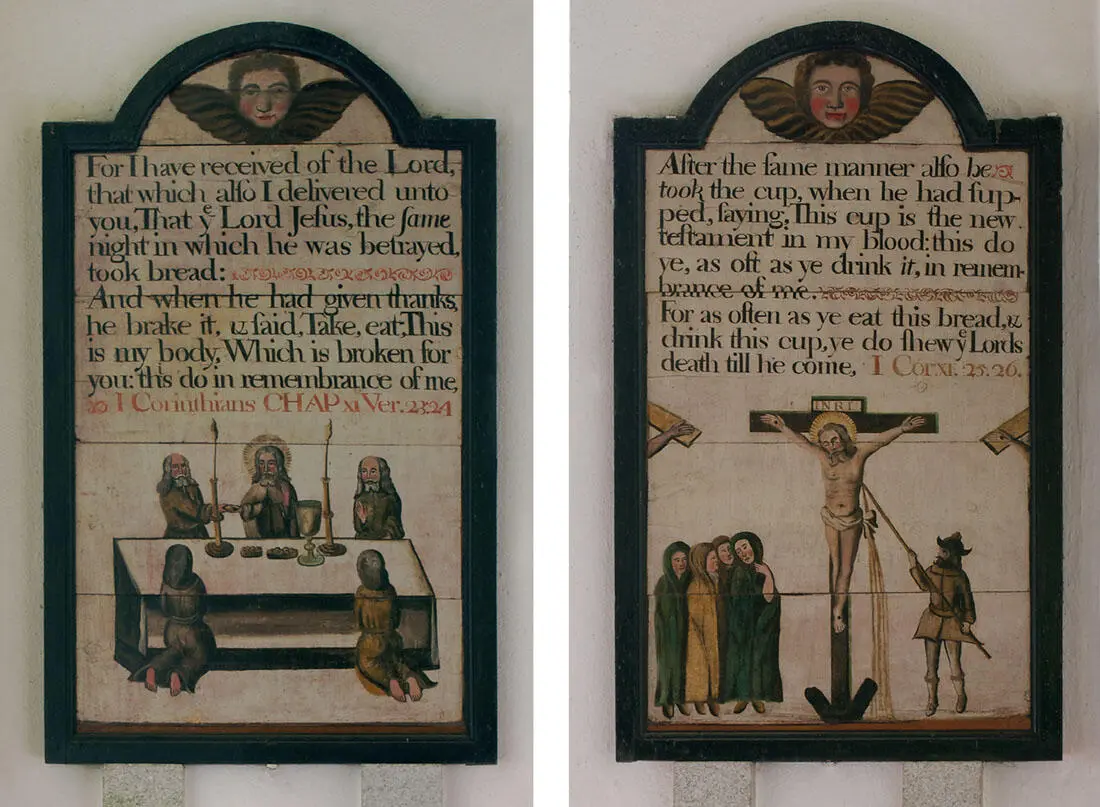 For I have received of the Lord,
that which alſo I delivered unto
you, That yͤ Lord Jeſus, the ſame
night in which he was betrayed,
took bread:
And when he had given thanks,
he brake it, & ſaid, Take, eat; This
is my body, Which is broken for
you: this do in remembrance of me,
I Corinthians CHAP XI Ver. 23:24
After the ſame manner alſo he
took the cup, when he had ſup-
ped, ſaying; This cup is the new
teſtament in my blood: this do
ye, as oft as ye drink it, in remem-
brance of me.
For as often as ye eat this bread, &
drink this cup, ye do ſhew yͤ Lords
death till he come, I Cor XI. 25. 26.
INRI